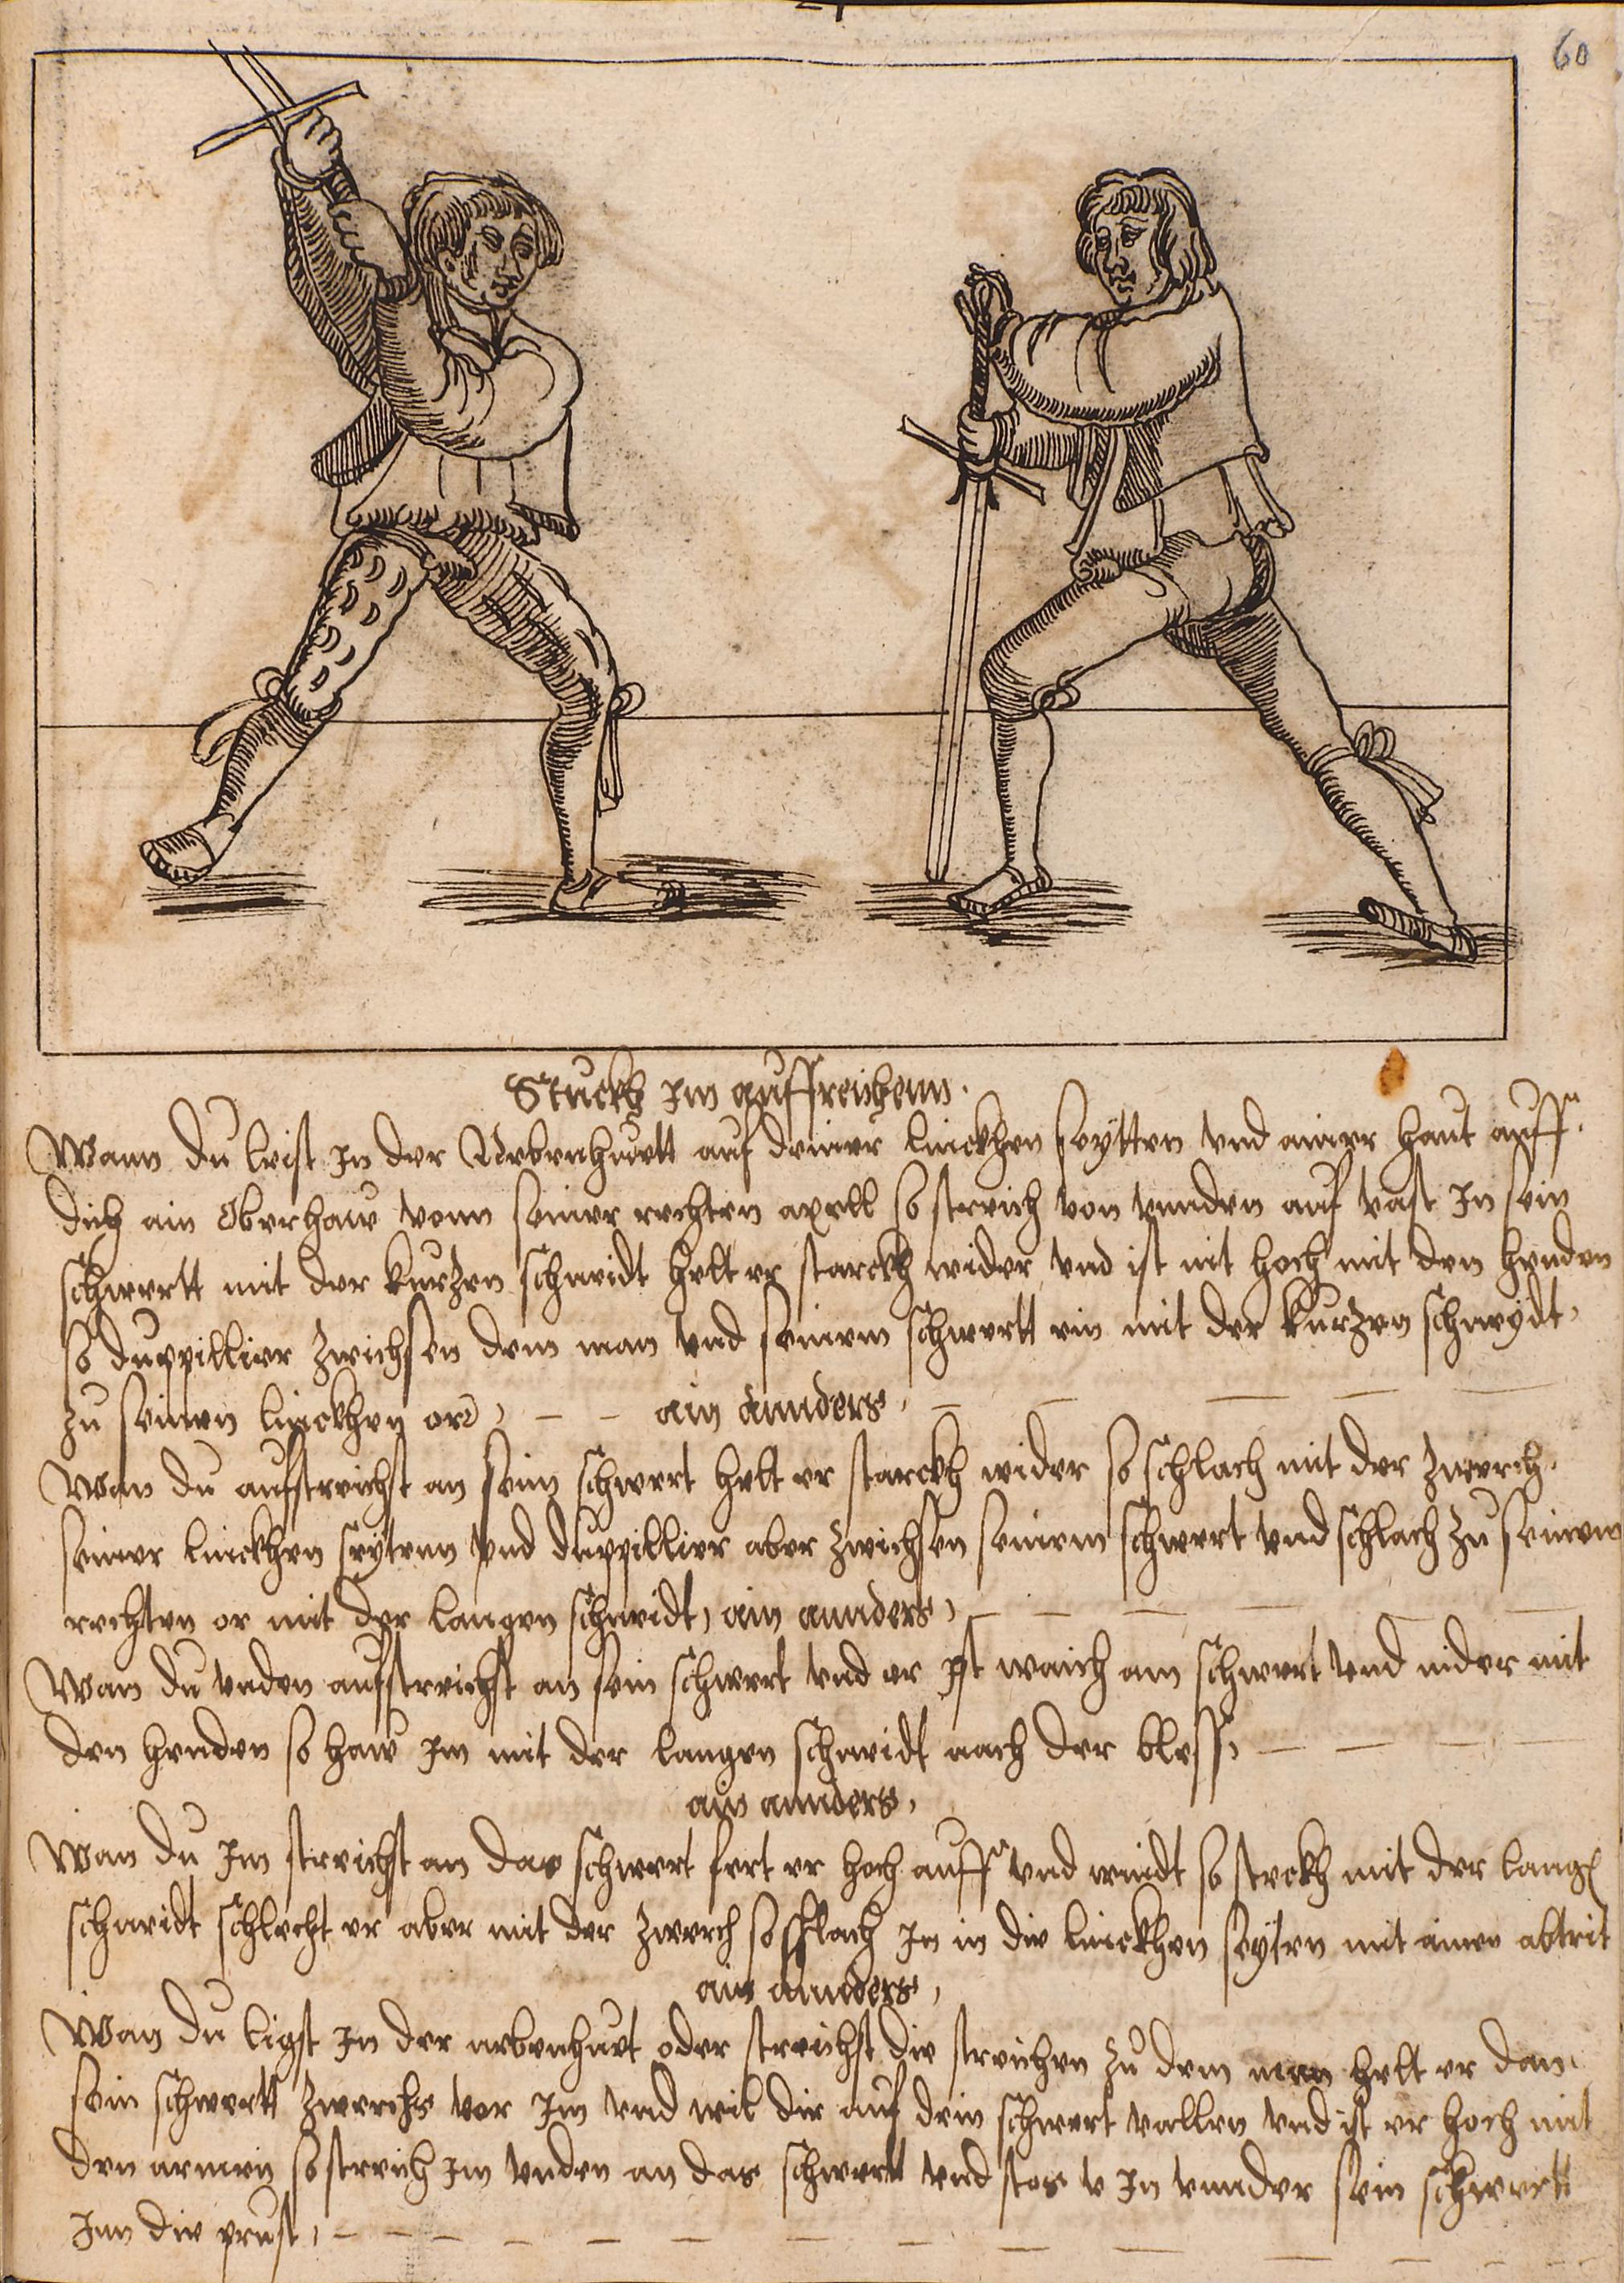 60
Stuckh Im auffreichenn.
Wann du leist In der Nebenhuett auf deiner linckhen seytten vnd ainer haut auff
dich ain Oberhaw vonn seiner rechten axell so streich von vnnden auf vast In sein
schwertt mit der kurzen schneidt helt er starckh wider vnd ist nit hoch mit den henden
so duppillier zwichsen dem man vnd seinem schwertt ein mit der kurzen schneydt,
zu seinen linckhen or, – – ain annders, –
Wan du aufstreichst an sein schwert helt er starckh wider so schlach mit der zwerch
seiner linckhen seytenn vnd duppillier aber zwichsen seinem schwert vnd schlach zu seinem
rechten or mit der langen schneidt, ain annders, –
Wan du vnden aufstreichst an sein schwert vnd er yst waich am schwert vnd nider mit
den henden so haw Im mit der langen schneidt nach der bless, –
ain annders,
Wan du Im streichst an das schwert fert er hoch auff vnd windt so streckh mit der lang
schneidt schlecht er aber mit der zwerch so schlach In in die linckhen seyten mit ainen abtrit
ain annders,
Wan du ligst In der nebenhuet oder streichst die streichen zu dem man helt er dan
sein schwertt zwerchs vor Im vnd wil dir auf dein schwert vallen vnd ist er hoch mit
den armen so streich Im vnden an das schwertt vnd stos In vnnder sein schwertt
Inn die prust, –